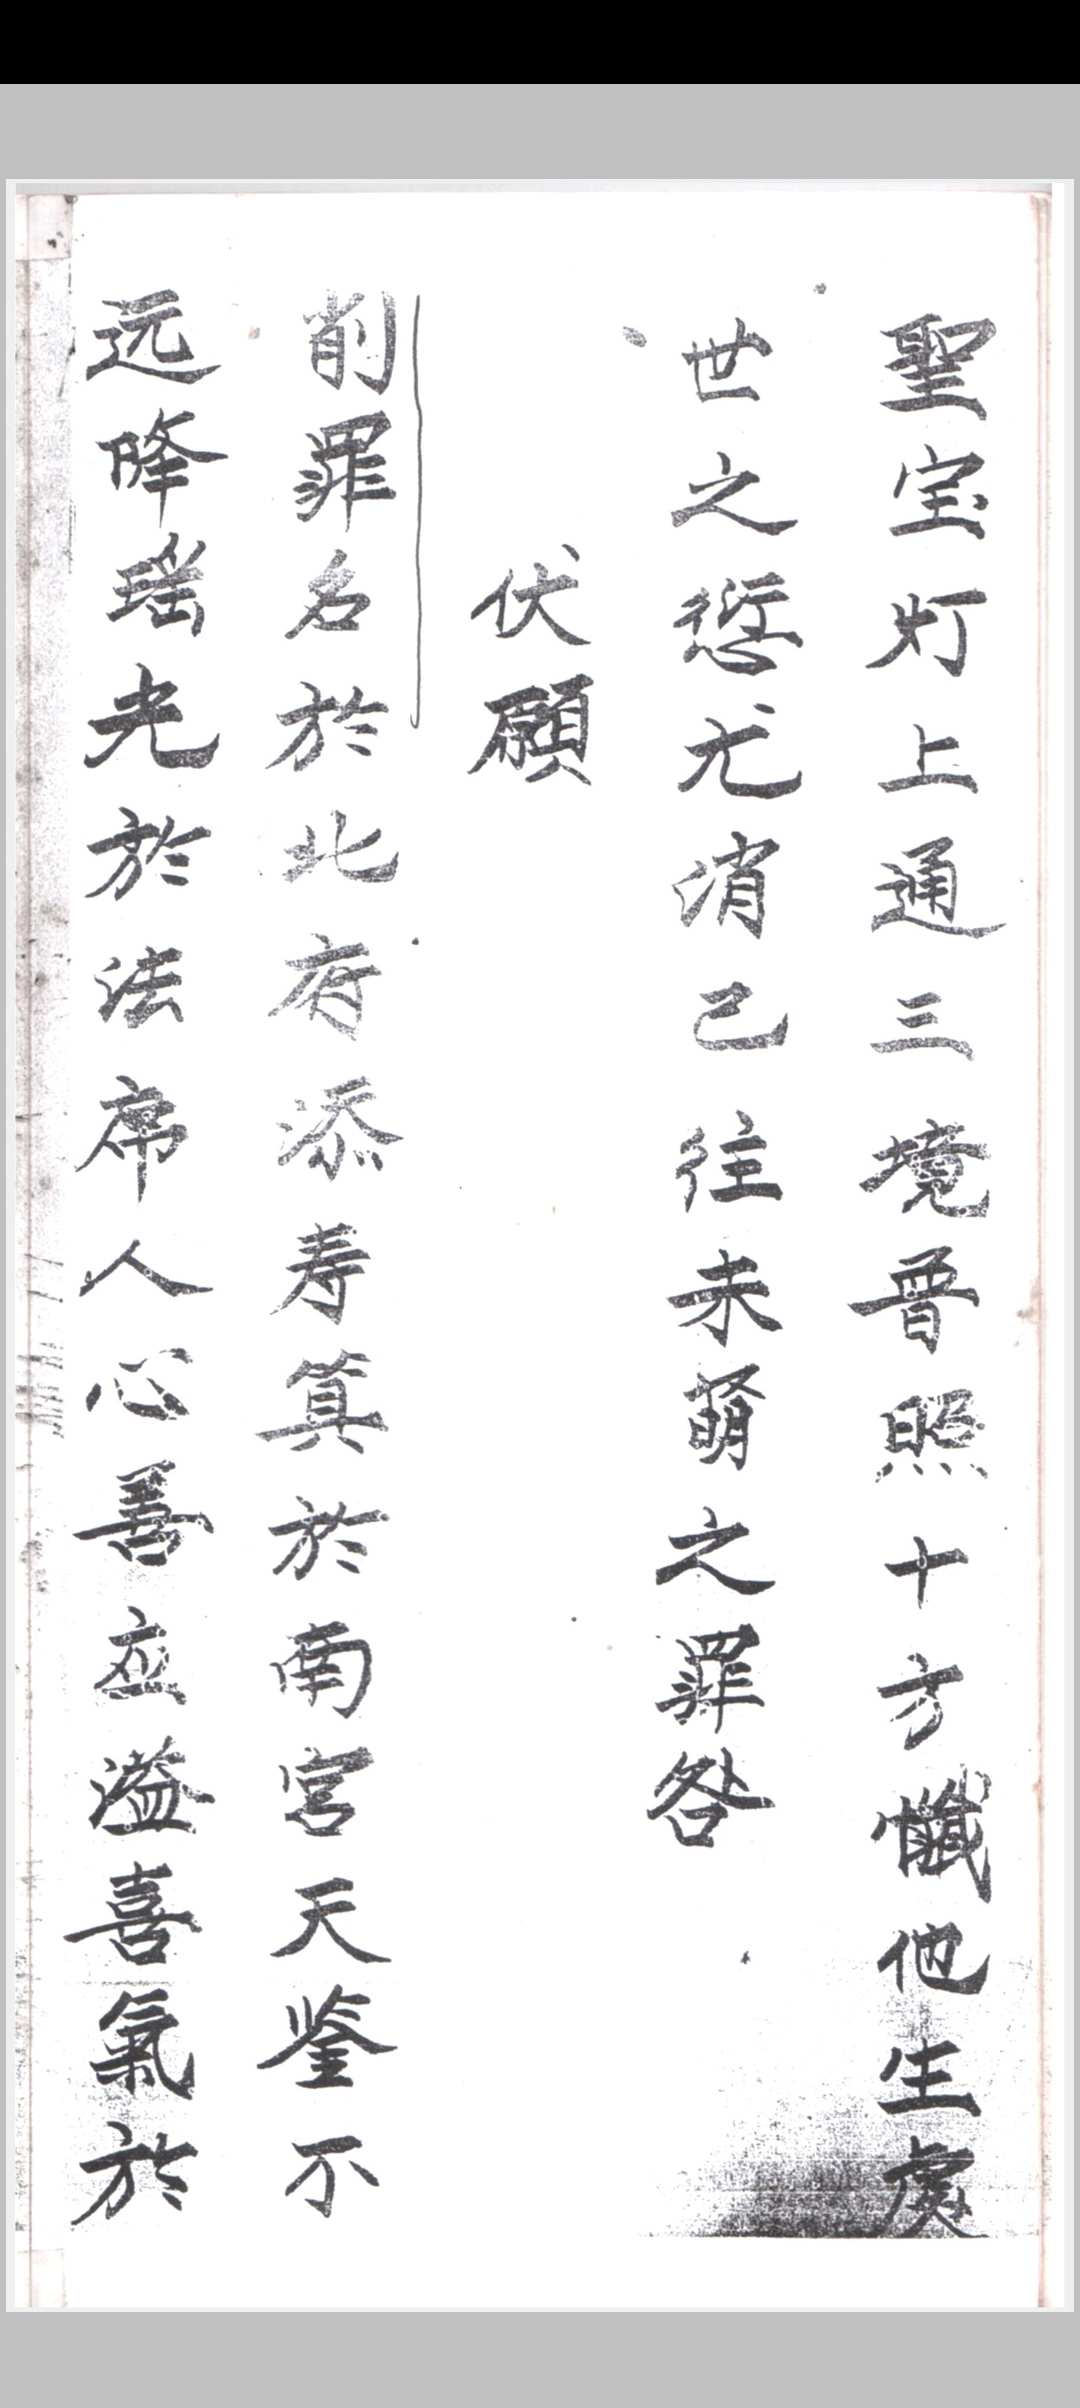 聖宝灯上通三境晉照十方懺他生處
世之愆尤消己往未萌之罪咎
伏願
削罪名於北府添寿筭於南宫天鉴不
远降瑶光於法席人心善应溢喜氣於